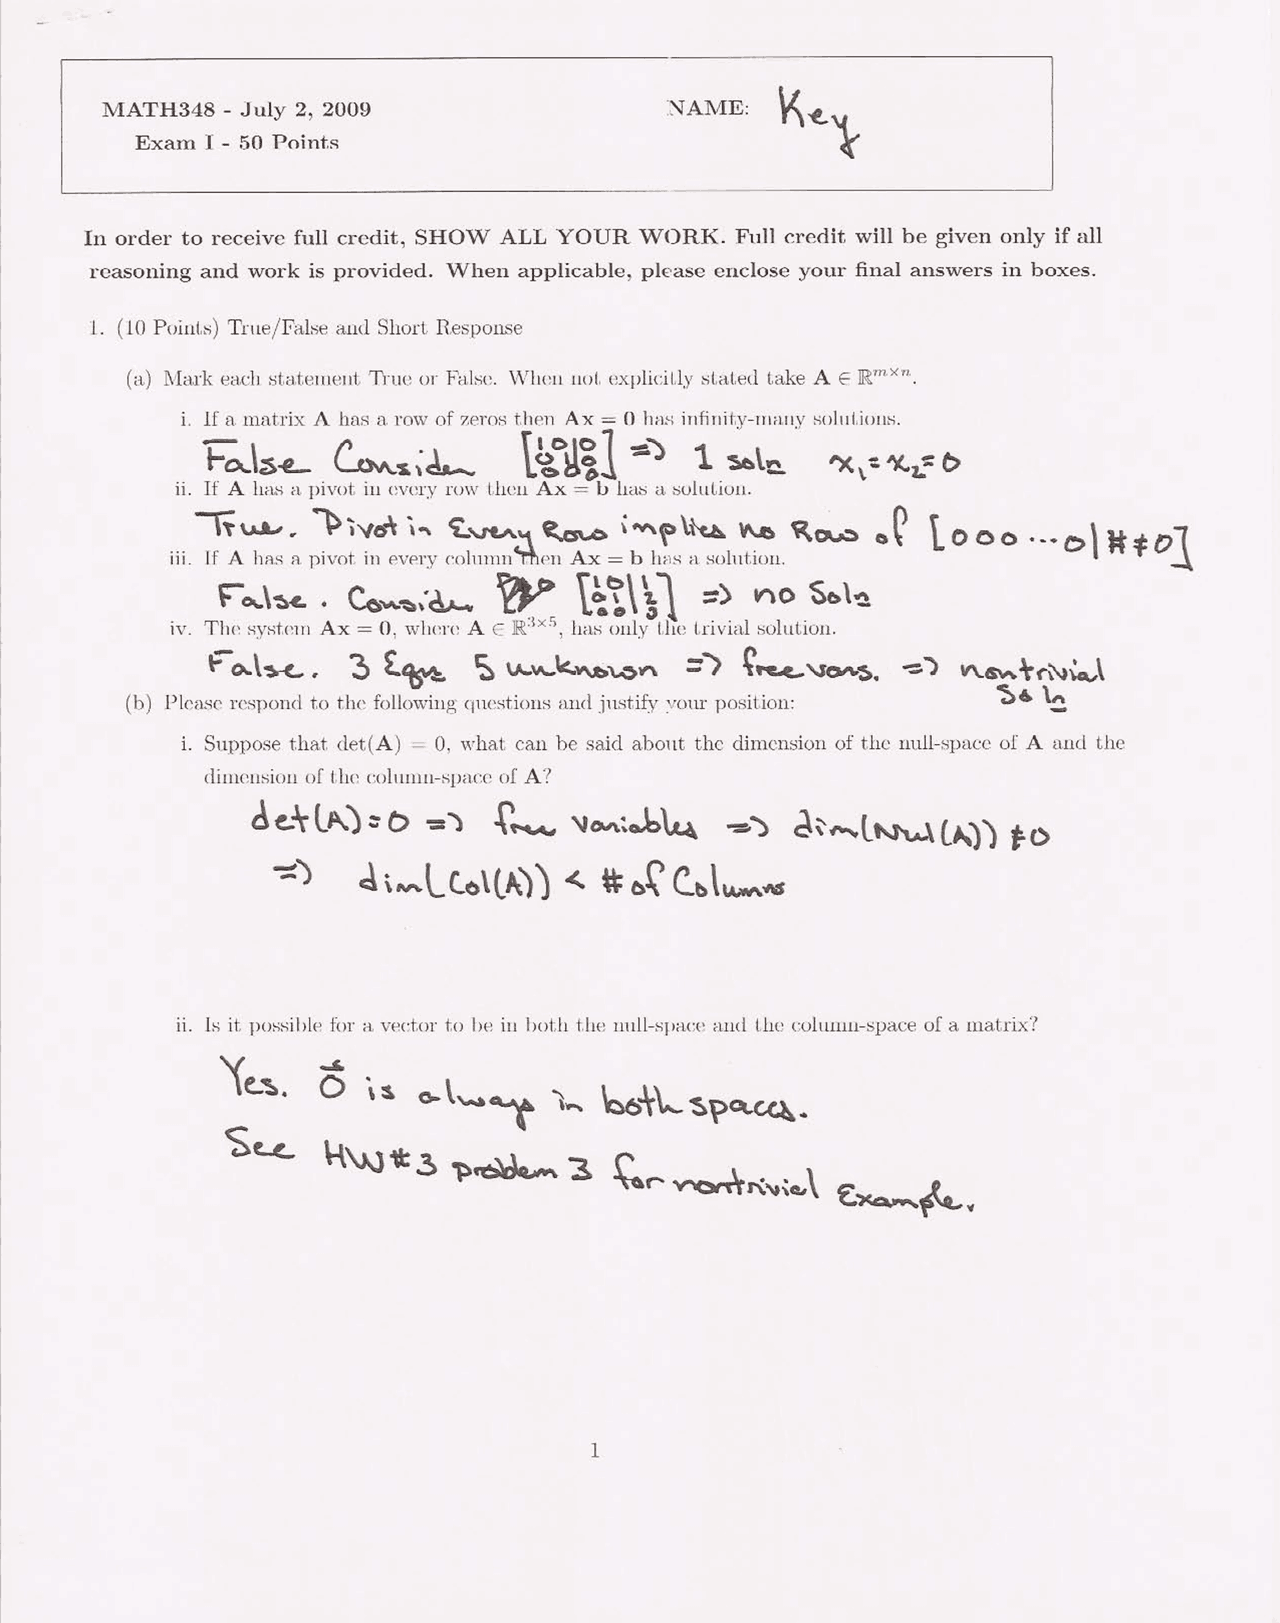 MATH348 - July 2, 2009
Exam I - 50 Points
NAME: Key
In order to receive full credit, SHOW ALL YOUR WORK. Full credit will be given only if all
reasoning and work is provided. When applicable, please enclose your final answers in boxes.
1. (10 Points) True/False and Short Response
(a) Mark each statement True or False. When not explicitly stated take A ∈ ℝᵐˣⁿ.
i. If a matrix A has a row of zeros then Ax = 0 has infinity-many solutions.
False Consider [1 0|0; 0 1|0; 0 0|0] => 1 soln x₁=x₂=0
ii. If A has a pivot in every row then Ax = b has a solution.
True. Pivot in Every Row implies no Row of [000...0|#≠0]
iii. If A has a pivot in every column then Ax = b has a solution.
False. Consider [1 0|1; 0 1|2; 0 0|3] => no Soln
iv. The system Ax = 0, where A ∈ ℝ³ˣ⁵, has only the trivial solution.
False. 3 Eqns 5 unknown => free vars. => nontrivial
Soln
(b) Please respond to the following questions and justify your position:
i. Suppose that det(A) = 0, what can be said about the dimension of the null-space of A and the
dimension of the column-space of A?
det(A)=0 => free variables => dim(Nul(A)) ≠0
=> dim(Col(A)) < # of Columns
ii. Is it possible for a vector to be in both the null-space and the column-space of a matrix?
Yes. 0⃗ is always in both spaces.
See HW#3 problem 3 for nontrivial Example.
1